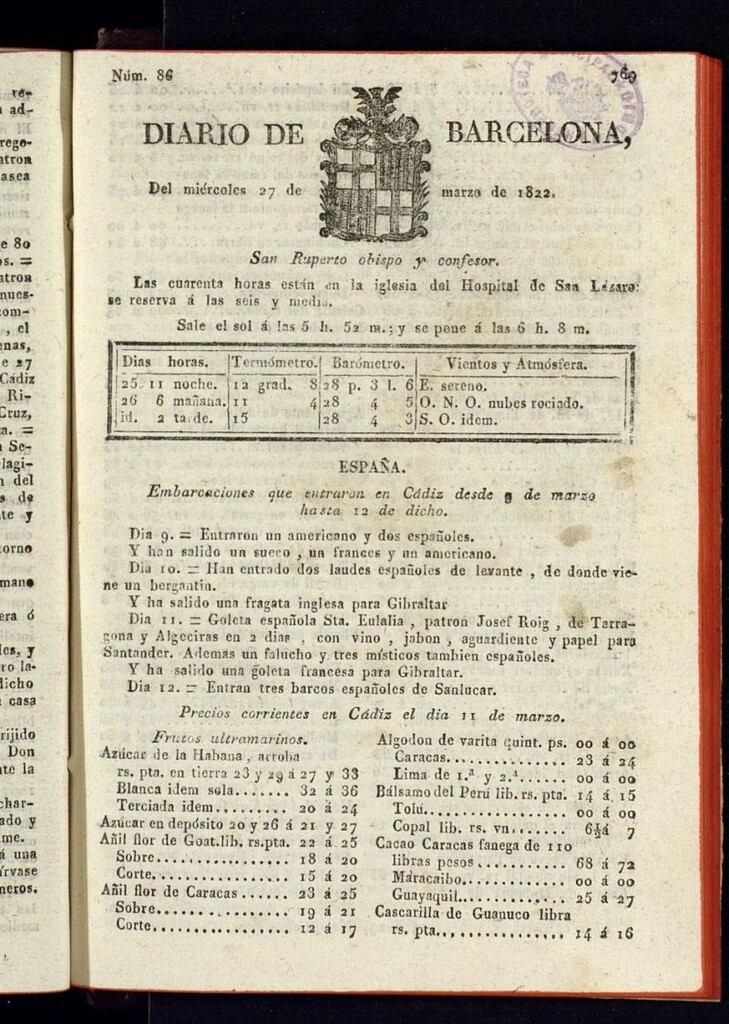 Núm. 86
769
DIARIO DE BARCELONA,
Del miércoles 27 de marzo de 1822.
San Ruperto obispo y confesor.
Las cuarenta horas están en la iglesia del Hospital de San Lázaro:
se reserva á las seis y media.
Sale el sol á las 5 h. 52 m.; y se pone á las 6 h. 8 m.
Dias horas. Termómetro. Barómetro. Vientos y Atmósfera.
25 11 noche. 12 grad. 8 28 p. 3 l. 6 E. sereno.
26 6 mañana. 11 4 28 4 5 O. N. O. nubes rociado.
id. 2 tarde. 15 28 4 3 S. O. idem.
ESPAÑA.
Embarcaciones que entraron en Cádiz desde 9 de marzo
hasta 12 de dicho.
Dia 9. = Entraron un americano y dos españoles.
Y han salido un sueco, un frances y un americano.
Dia 10. = Han entrado dos laudes españoles de levante, de donde vie-
ne un bergantin.
Y ha salido una fragata inglesa para Gibraltar
Dia 11. = Goleta española Sta. Eulalia, patron Josef Roig, de Tarra-
gona y Algeciras en 2 dias, con vino, jabon, aguardiente y papel para
Santander. Ademas un falucho y tres místicos tambien españoles.
Y ha salido una goleta francesa para Gibraltar.
Dia 12. = Entran tres barcos españoles de Sanlucar.
Precios corrientes en Cádiz el dia 11 de marzo.
Frutos ultramarinos.
Azúcar de la Habana, arroba
rs. pta. en tierra 23 y 29 á 27 y 33
Blanca idem sola....... 32 á 36
Terciada idem.......... 20 á 24
Azúcar en depósito 20 y 26 á 21 y 27
Añil flor de Goat. lib. rs. pta. 22 á 25
Sobre................ 18 á 20
Corte................ 15 á 20
Añil flor de Caracas...... 23 á 25
Sobre................ 19 á 21
Corte................ 12 á 17
Algodon de varita quint. ps. 00 á 00
Caracas............... 23 á 24
Lima de 1.ª y 2.ª...... 00 á 00
Bálsamo del Perú lib. rs. pta. 14 á 15
Tolú.................. 00 á 00
Copal lib. rs. vn....... 6½ á 7
Cacao Caracas fanega de 110
libras pesos........... 68 á 72
Maracaibo............. 00 á 00
Guayaquil............. 25 á 27
Cascarilla de Guanuco libra
rs. pta................ 14 á 16